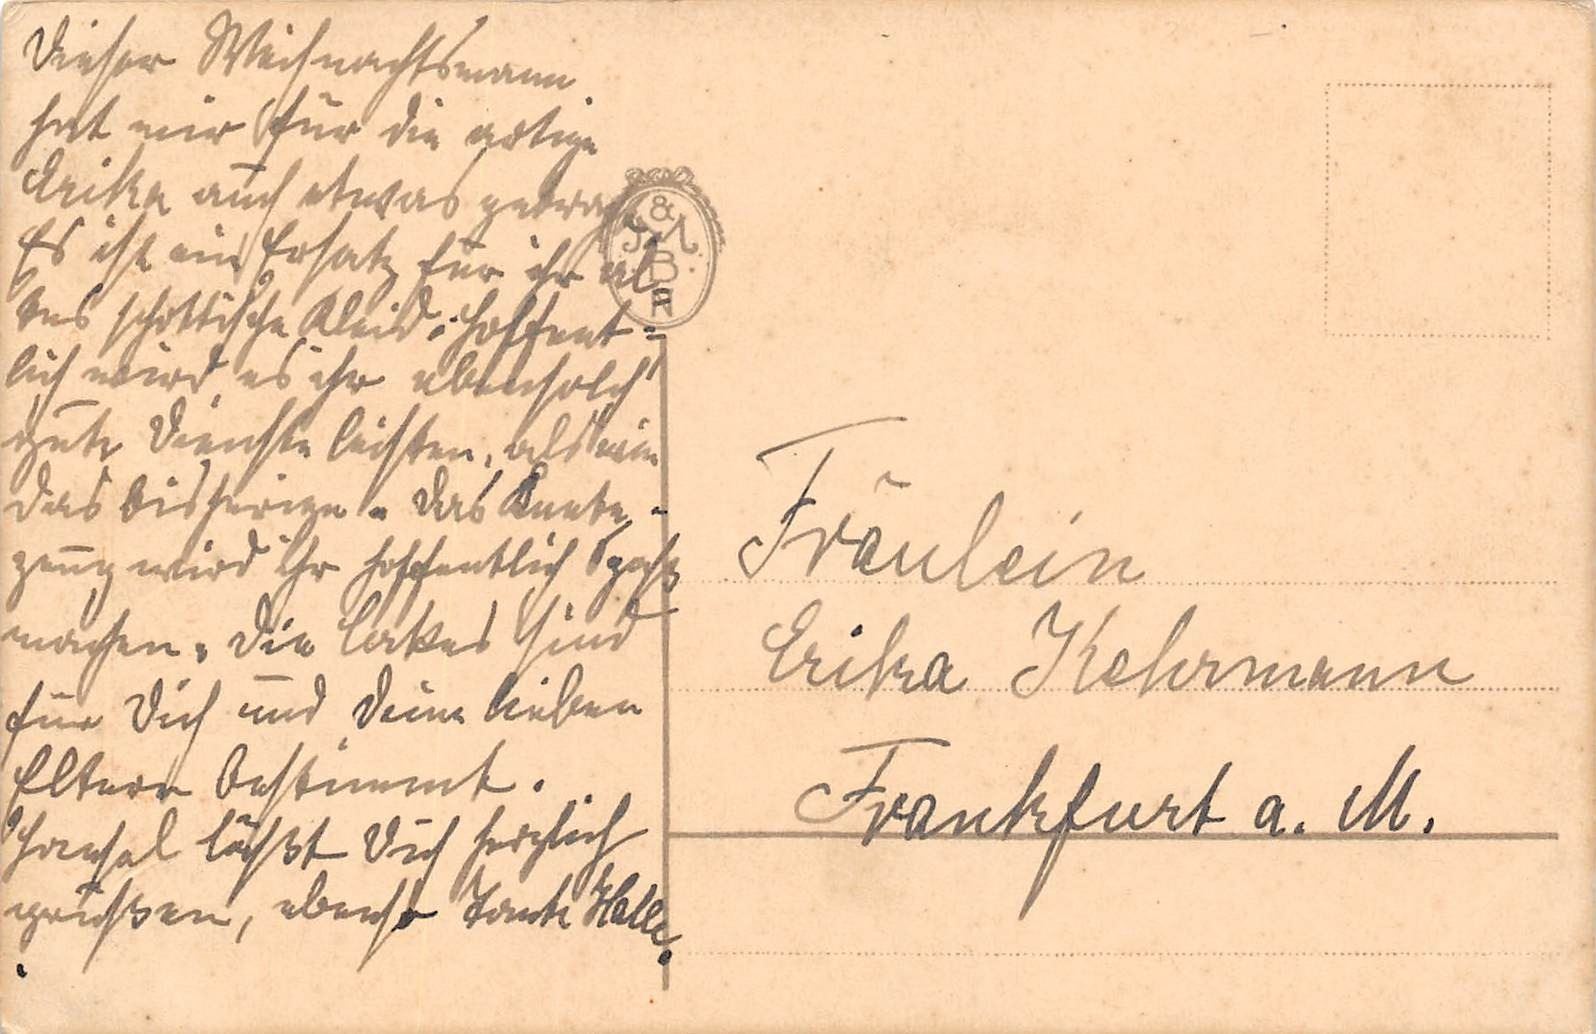 Dieser Weihnachtsmann
hat mir für die artige
Erika auch etwas gebracht.
Es ist ein Ersatz für ihr al-
tes schottische Kleid. Hoffent-
lich wird es ihr ebensolch
gute Dienste leisten, als wie
das bisherige. Das
zeug wird ihr hoffentlich Spaß
machen. Die sind
für Dich und Deine lieben
Eltern bestimmt.
Hansel läßt Dich herzlich
grüßen, ebenso Tante Halle.
Fräulein
Erika Kehrmann
Frankfurt a. M.